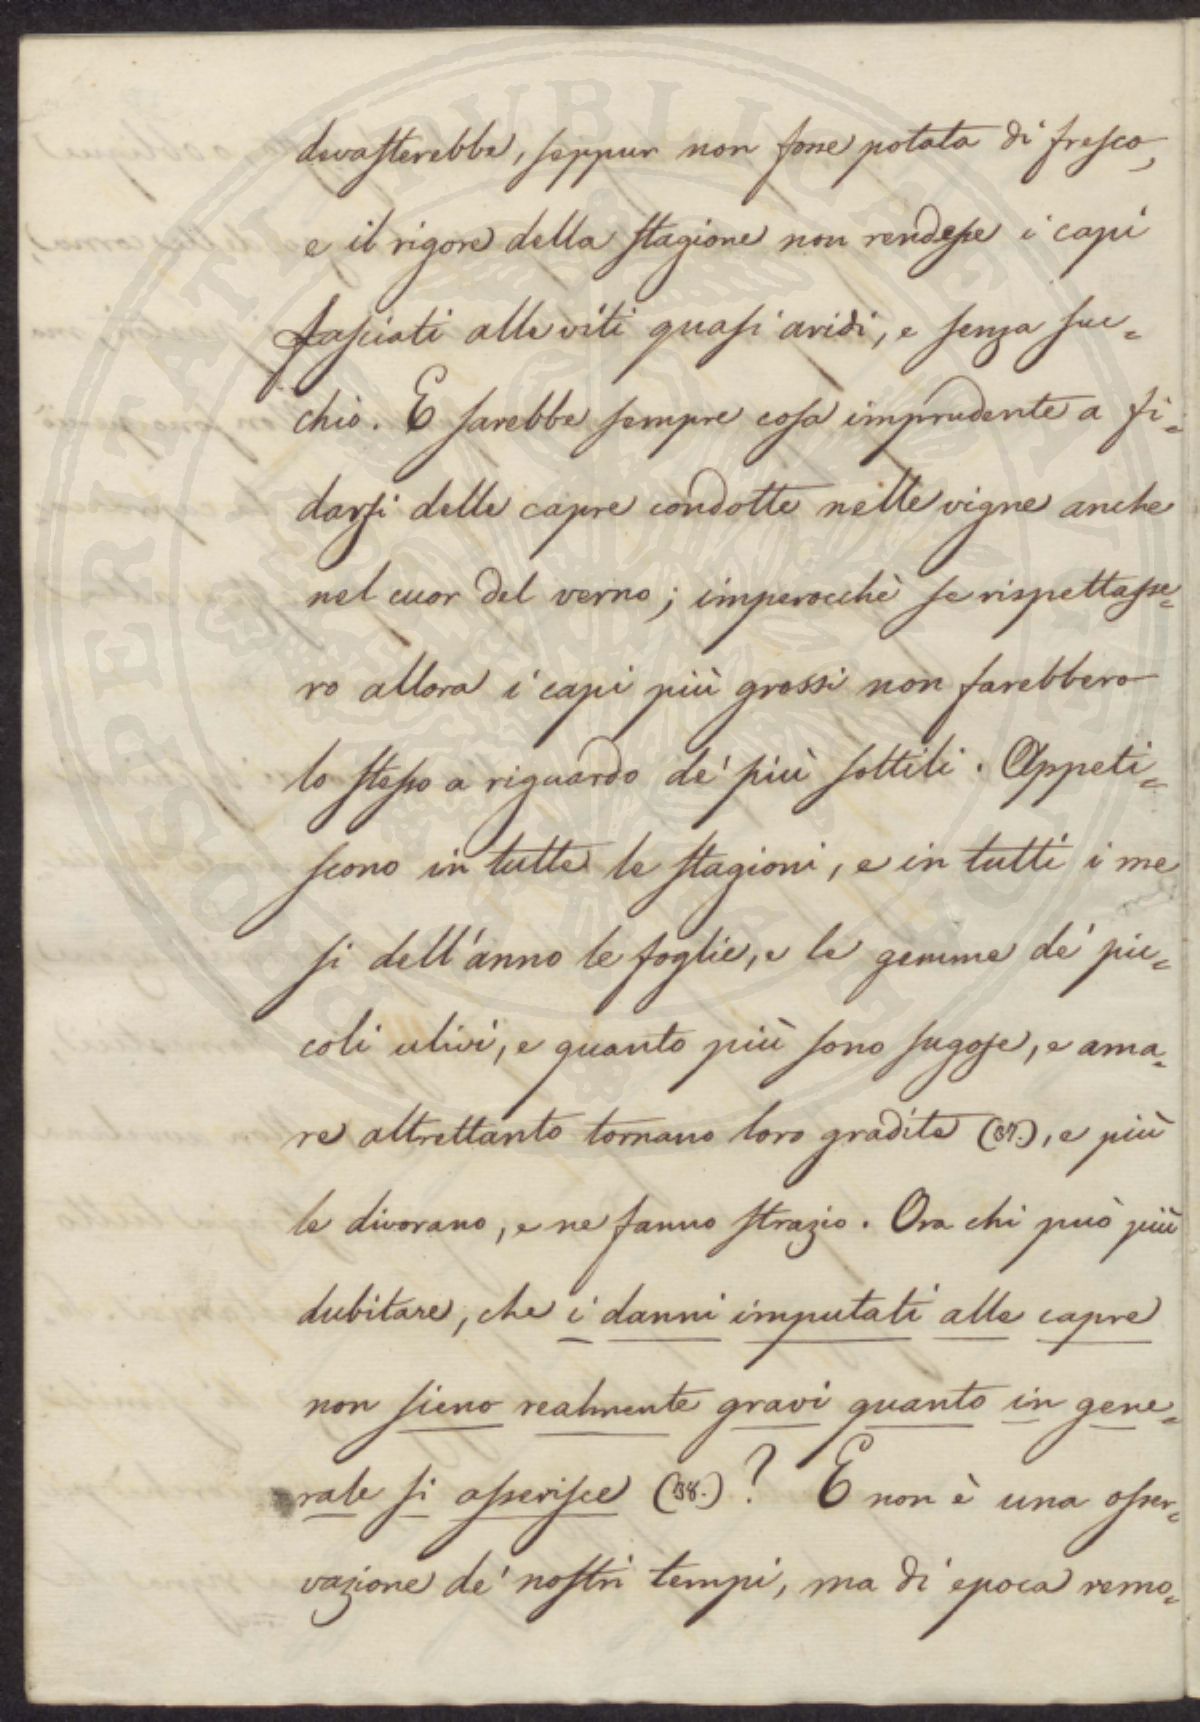 devasterebbe, seppur non fosse potata di fresco,
e il rigore della stagione non rendesse i capi
lasciati alle viti quasi aridi, e senza suc=
chio. E sarebbe sempre cosa imprudente a fi=
darsi delle capre condotte nelle vigne anche
nel cuor del verno; imperocchè se rispettasse=
ro allora i capi più grossi non farebbero
lo stesso a riguardo de' più sottili. Appeti=
scono in tutte le stagioni, e in tutti i me
si dell'anno le foglie, e le gemme de' pic=
coli ulivi, e quanto più sono sugose, e ama=
re altrettanto tornano loro gradite (37.), e più
le divorano, e ne fanno strazio. Ora chi può più
dubitare, che i danni imputati alle capre
non sieno realmente gravi quanto in gene=
rale si asserisce (38.)? E non è una osser=
vazione de' nostri tempi, ma di epoca remo=